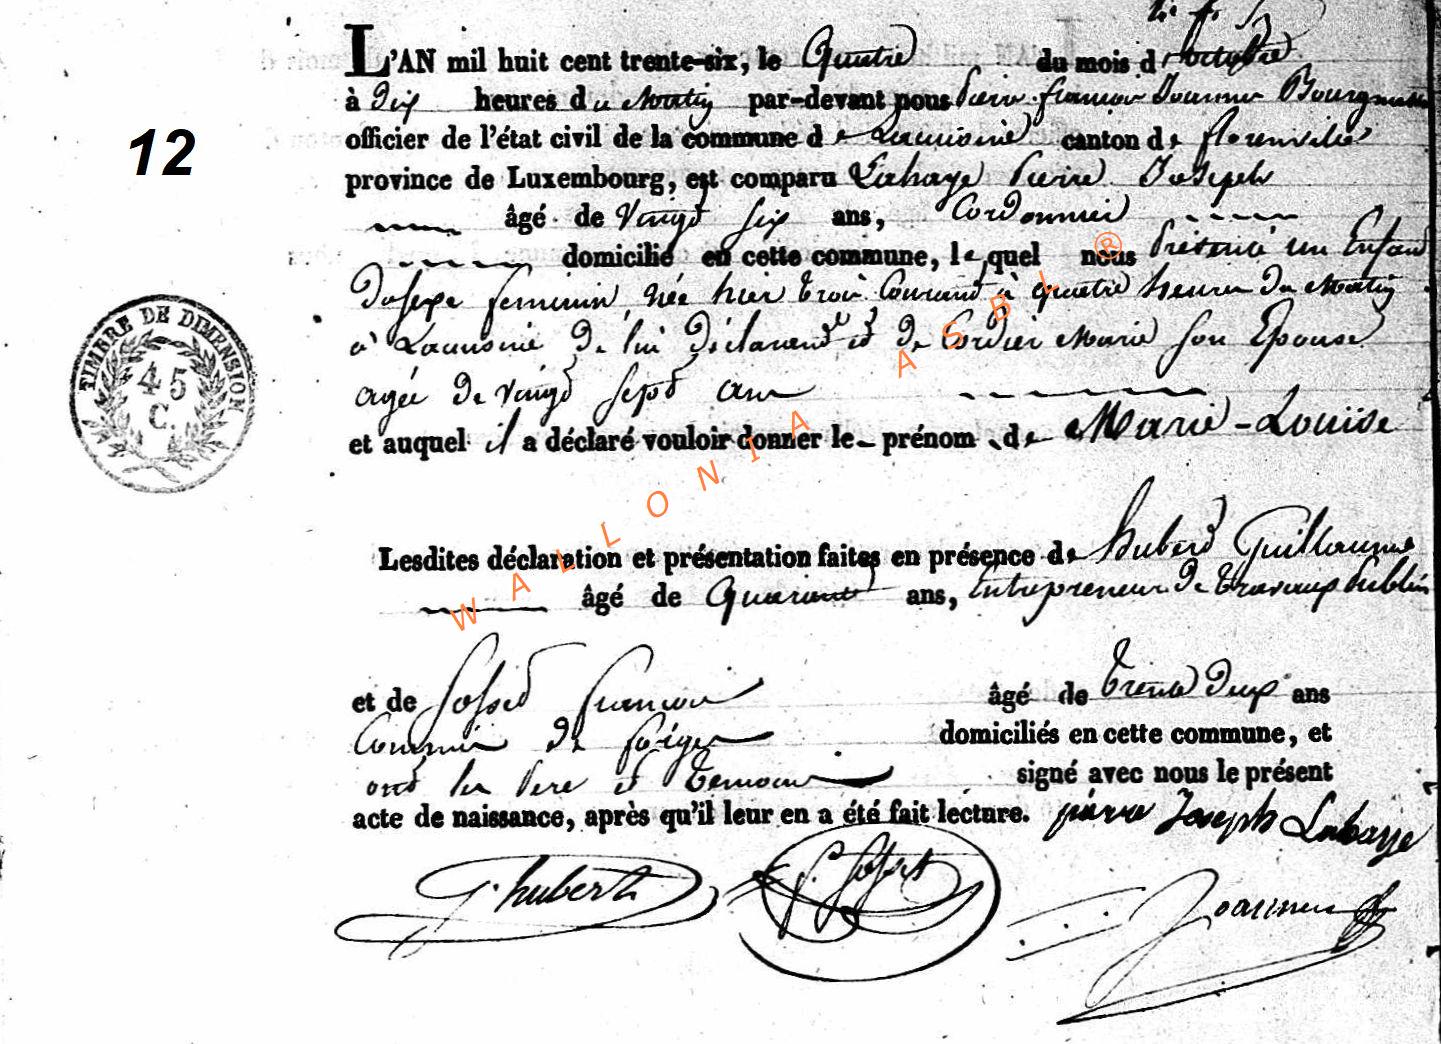 L'AN mil huit cent trente-six, le Quatre du mois d'octobre
à Dix heures du Matin par-devant nous Pierre françois Bourgmestre
officier de l'état civil de la commune de canton de florenville
province de Luxembourg, est comparu Lahaye Pierre Joseph
âgé de Vingt six ans, Cordonnier
domicilié en cette commune, lequel nous Présente un Enfant
12
Du sexe feminin, née hier trois Courant à quatre heures du Matin
à De lui Déclarant et de Cordier Marie son Epouse
agée de vingt sept ans
et auquel il a déclaré vouloir donner le prénom de Marie-Louise
TIMBRE DE DIMENSION
45
C.
Lesdites déclaration et présentation faites en présence de hubert Guillaume
âgé de Quarante ans, Entrepreneur de travaux Publics
et de françois âgé de trente Deux ans
Commis de domiciliés en cette commune, et
ont les Pere et temoins signé avec nous le présent
acte de naissance, après qu'il leur en a été fait lecture. pierre Joseph Lahaye
g. hubert
WALLONIA ASBL ®